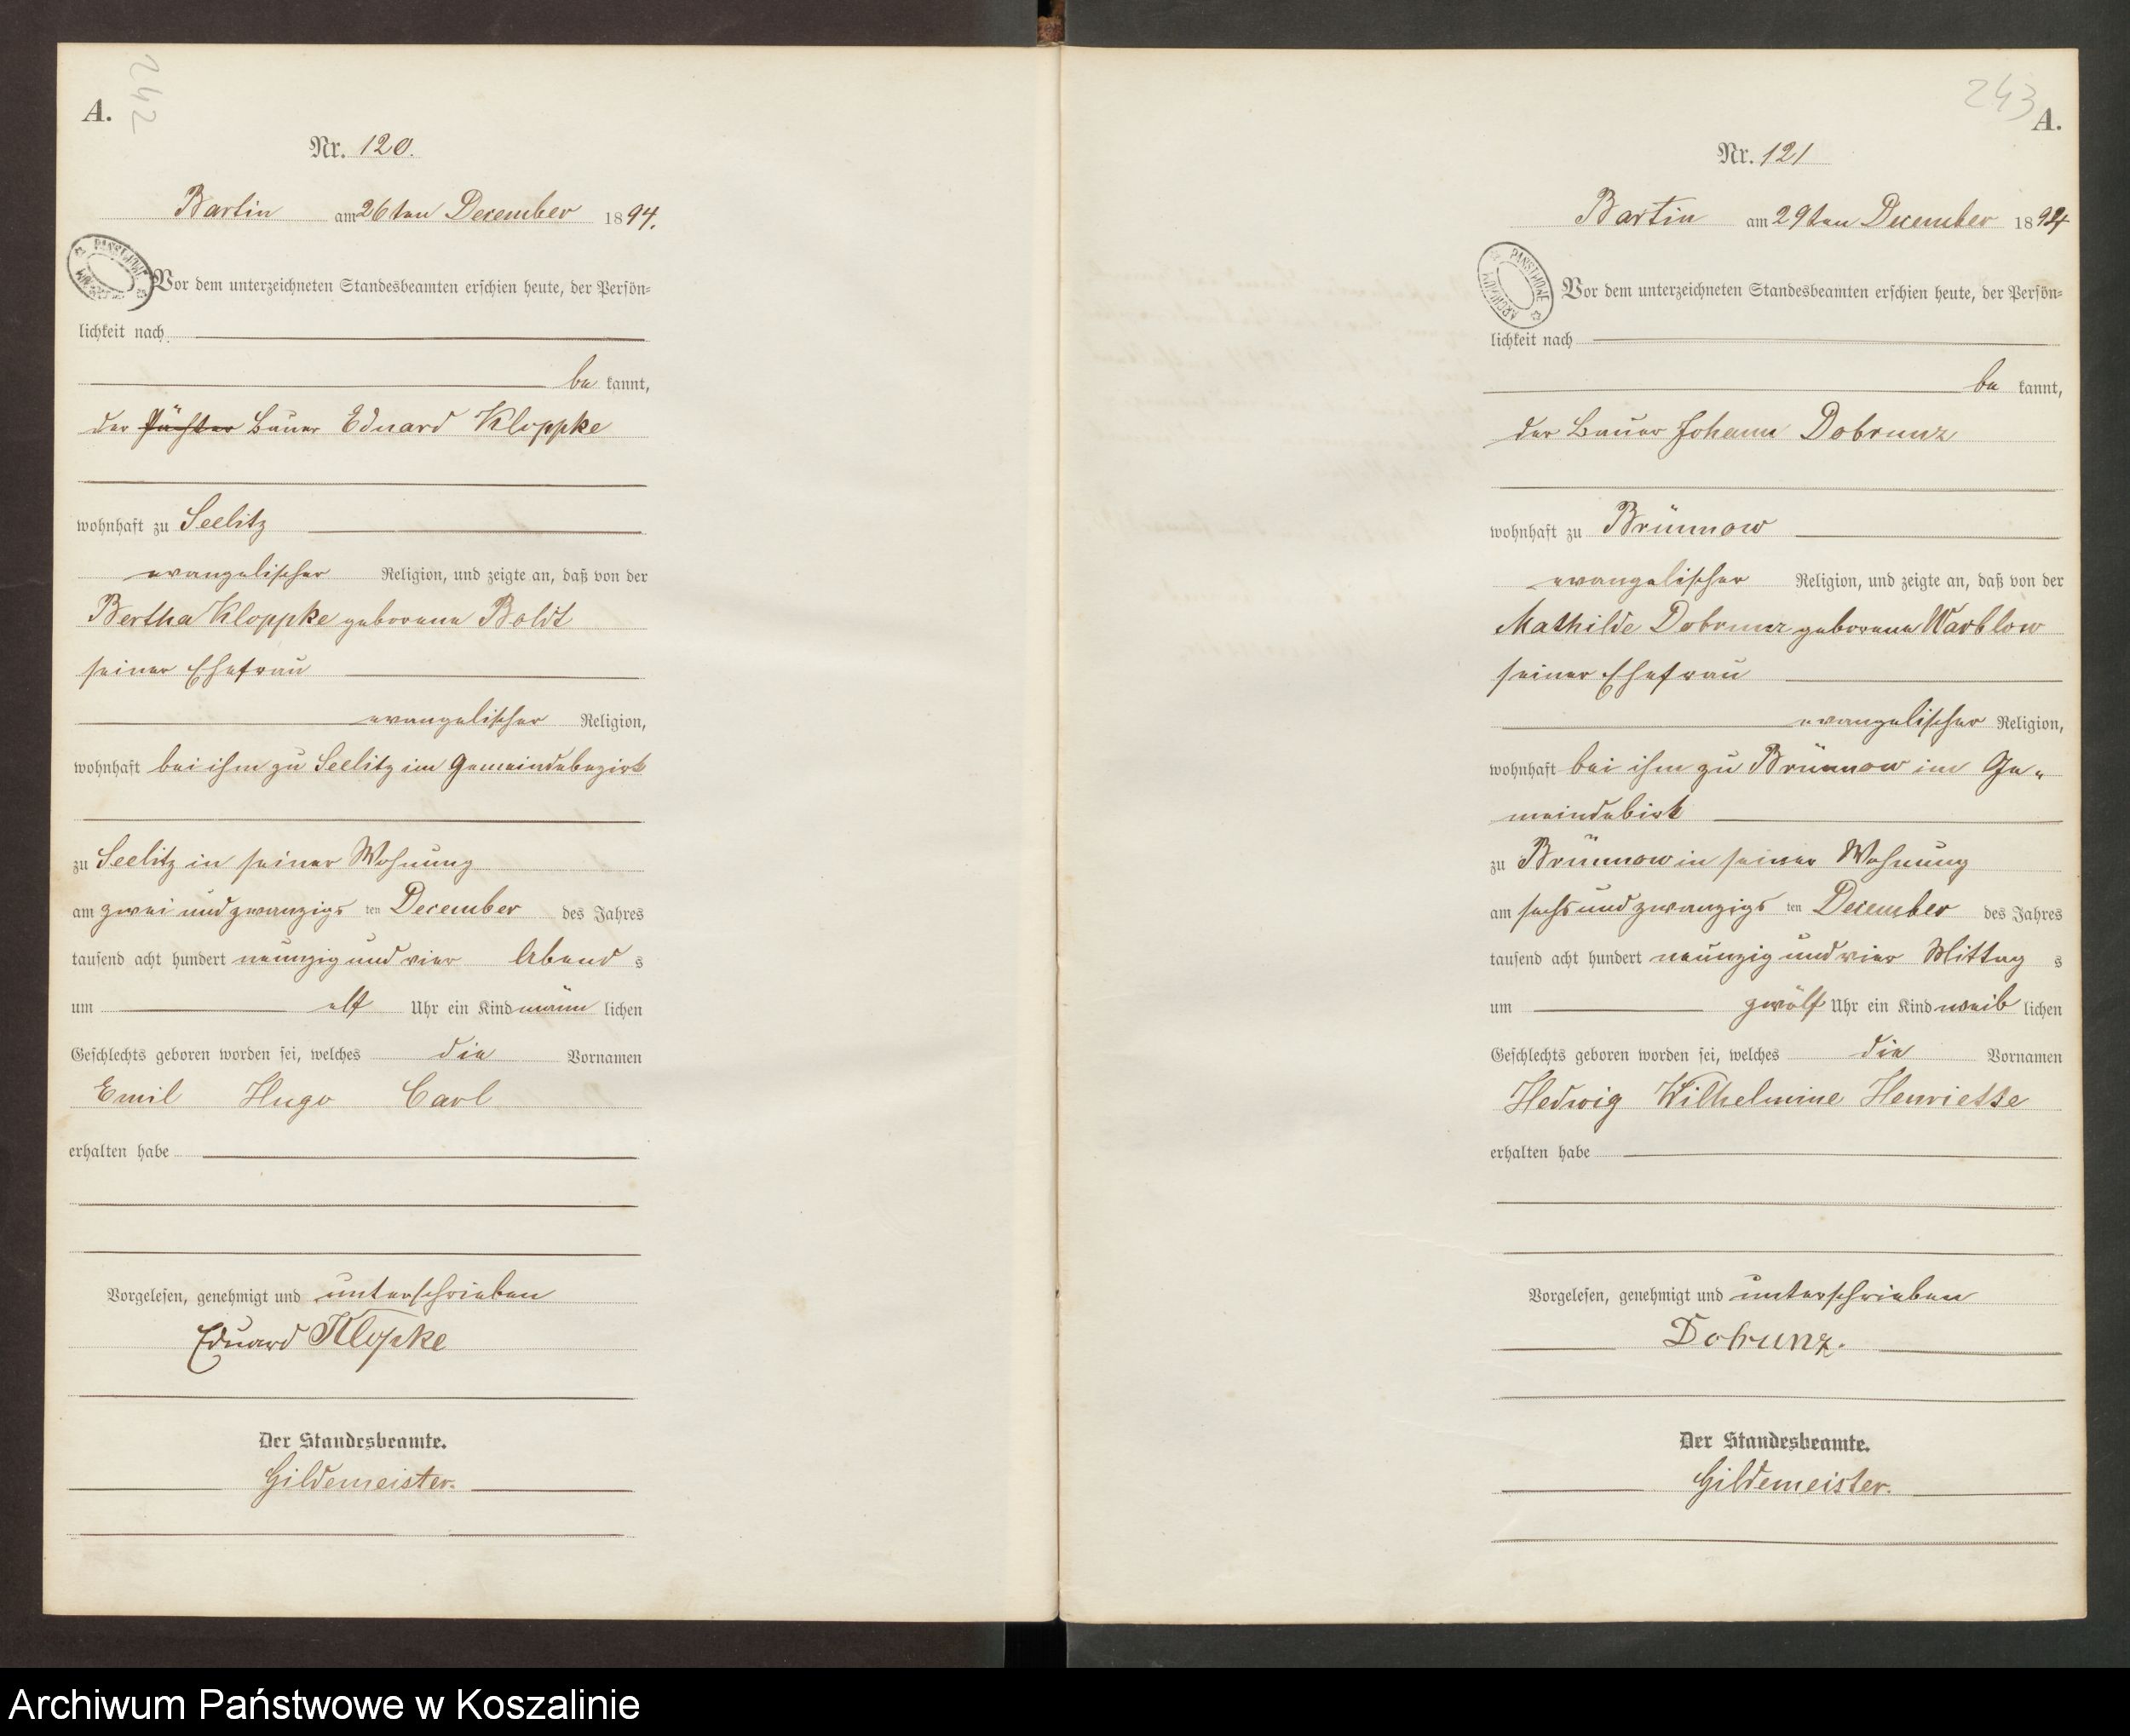 242
A.
Nr. 120.
Bartin am 26ten December 1894.
Vor dem unterzeichneten Standesbeamten erschien heute, der Persön=
lichkeit nach
be kannt,
der Pächter Bauer Eduard Kloppke
wohnhaft zu Seelitz
evangelischer Religion, und zeigte an, daß von der
Bertha Kloppke geborene Boldt
seiner Ehefrau
evangelischer Religion,
wohnhaft bei ihm zu Seelitz im Gemeindebezirk
zu Seelitz in seiner Wohnung
am zwei und zwanzigs ten December des Jahres
tausend acht hundert neunzig und vier Abend s
um elf Uhr ein Kind männ lichen
Geschlechts geboren worden sei, welches die Vornamen
Emil Hugo Carl
erhalten habe
Vorgelesen, genehmigt und unterschrieben
Eduard Klopke
Der Standesbeamte.
Gildemeister.
243
A.
Nr. 121
Bartin am 29ten December 1894
PANSTWOWE ARCHIWUM
Vor dem unterzeichneten Standesbeamten erschien heute, der Persön=
lichkeit nach
be kannt,
der Bauer Johann Dobrunz
wohnhaft zu Brünnow
evangelischer Religion, und zeigte an, daß von der
Mathilde Dobrunz geborene Warblow
seiner Ehefrau
evangelischer Religion,
wohnhaft bei ihm zu Brünnow im Ge„
meindebirk
zu Brünnow in seiner Wohnung
am sechs und zwanzigs ten December des Jahres
tausend acht hundert neunzig und vier Mittag s
um zwölf Uhr ein Kind weib lichen
Geschlechts geboren worden sei, welches die Vornamen
Hedwig Wilhelmine Henriette
erhalten habe
Vorgelesen, genehmigt und unterschrieben
Dobrunz.
Der Standesbeamte.
Gildemeister.
Archiwum Państwowe w Koszalinie